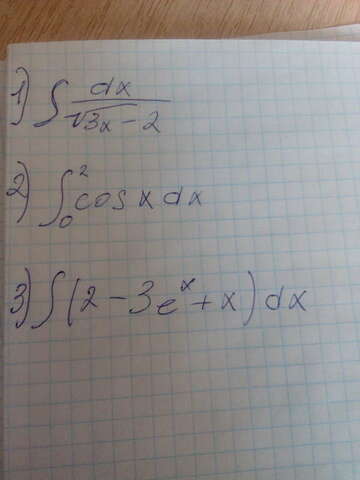 1) ∫ dx / √3x - 2
2) ∫₀² cos x dx
3) ∫ (2 - 3eˣ + x) dx